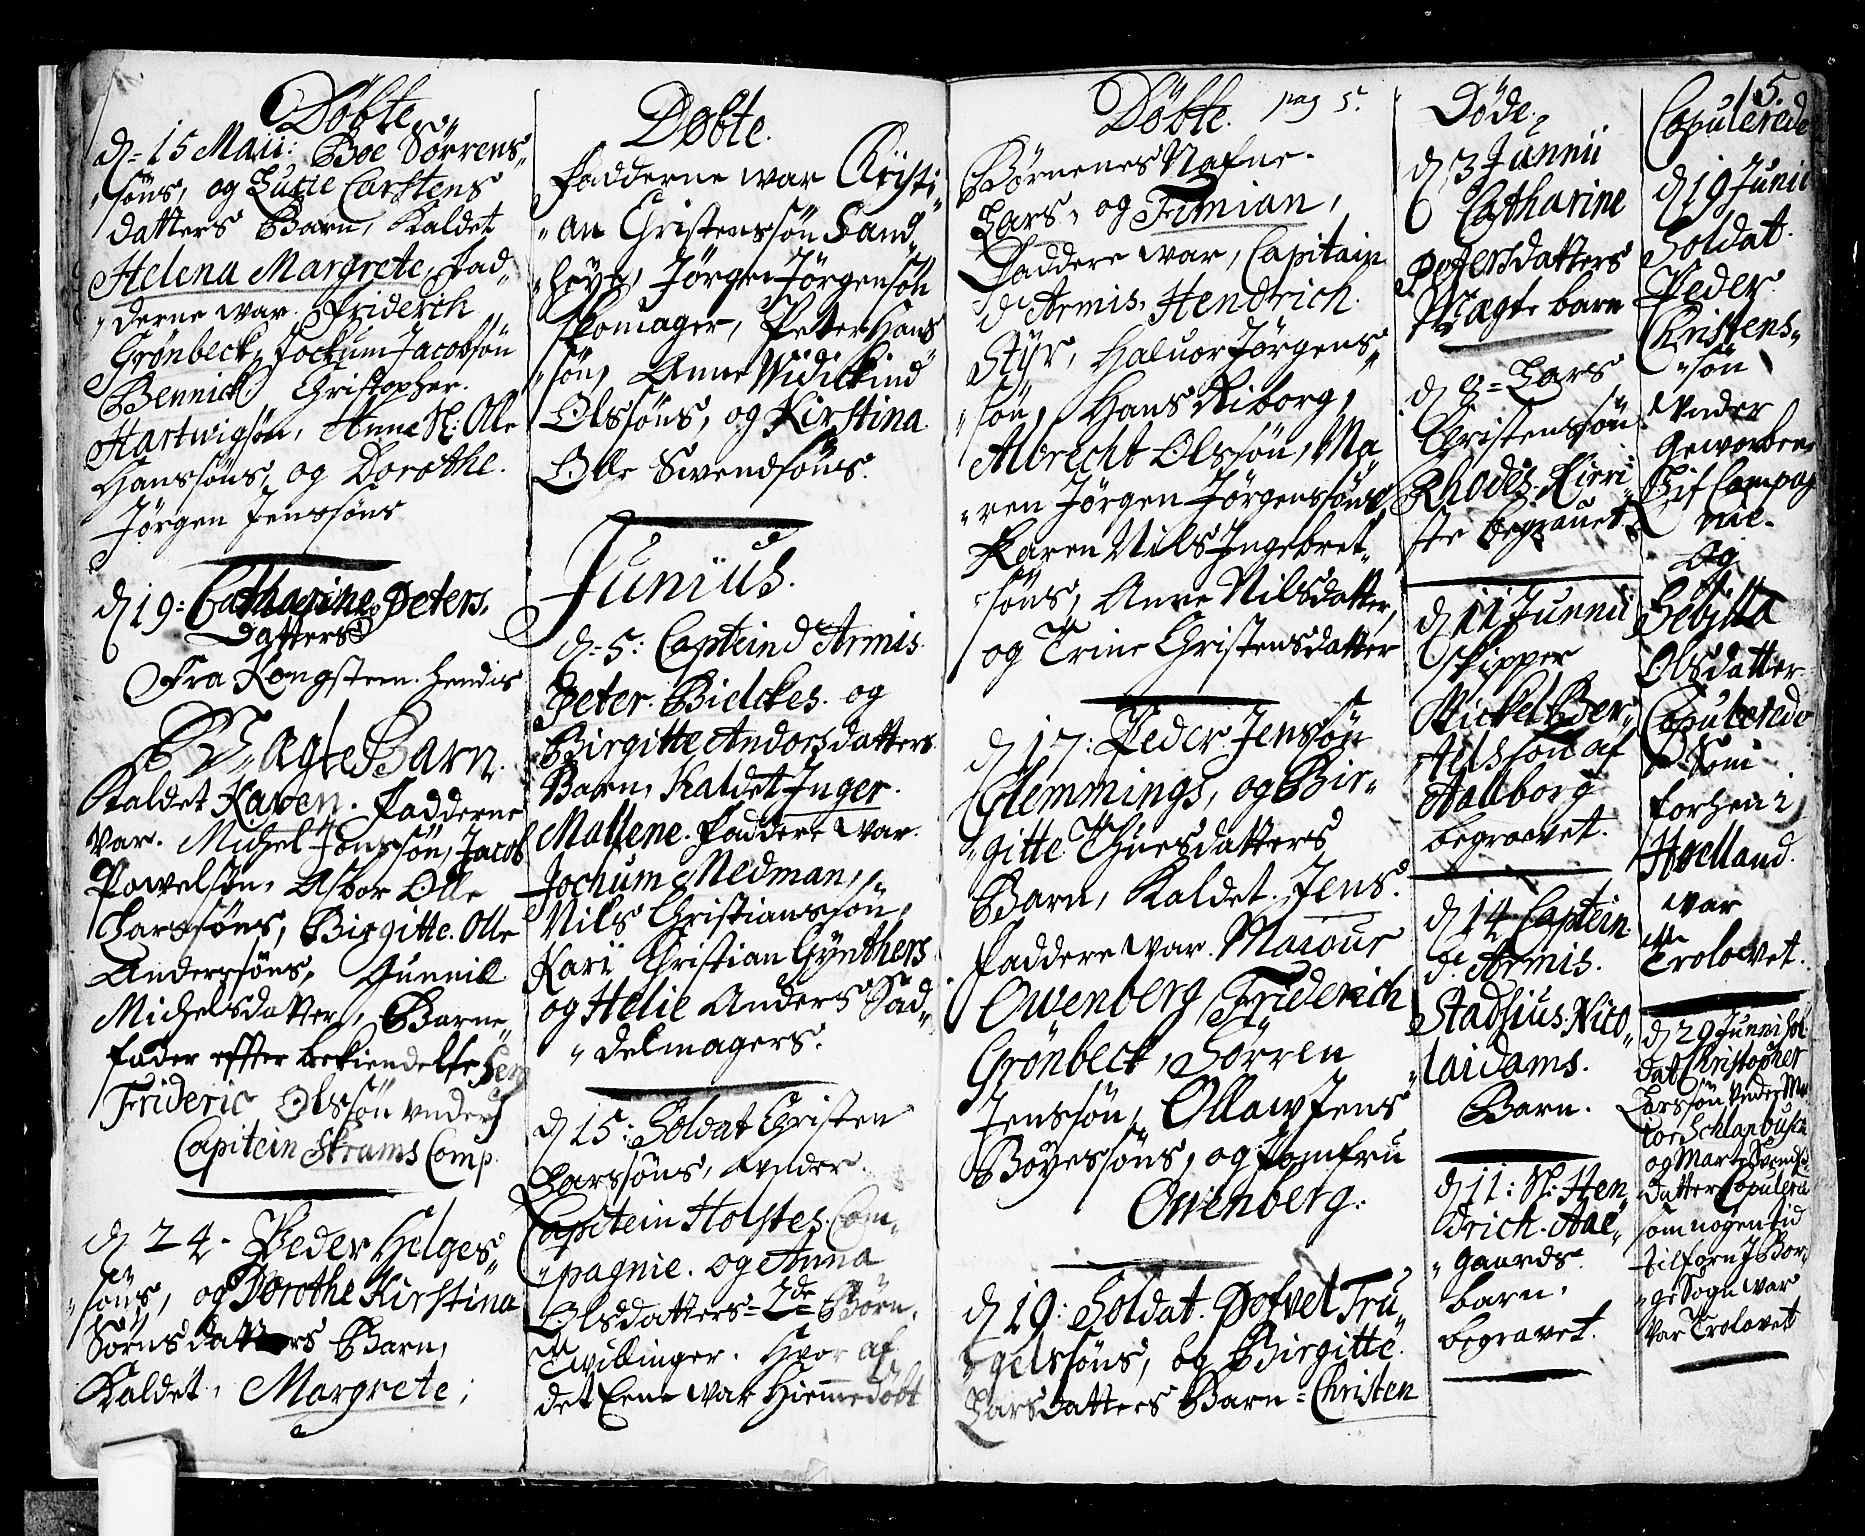 Døbte
d. 15 Maii: Boe Sørrens-
søns, og Lucie Carstens
datters Barn, Kaldet
Helena Margrete, Fad-
derne war. Friderich
Grønbeck, Jockum Jacobsøn
Bennick, Christopher.
Hartwigsøn, Anne Sl: Olle
Hanssøns, og Dorothe.
Jørgen Jenssøns
d. 19: Catharine Peters.
Datters
Fra Kongsteen. hendis
Uægte Barn.
Kaldet Karen. Fadderne
Var. Michel Jonssøn, Jacob
Powelsøn, Asbor Olle
Larssøns, Birgitte. Olle
Anderssøns, Gunnill
Michelsdatter, Barne-
fader effter bekiendelse
Frideric Olssøn vnder
Capitein Skrams Comp.
d. 24. Peder Helges-
søns, og Dorothe Kirstina
Sørnsdatters Barn,
Kaldet, Margrete;
Døbte.
Fadderne war Christi-
an Christenssøn Sand-
høyt, Jørgen Jørgensøn
skomager, Peter Hans
søn, Anne Widickind
Olssøns, og Kirstina.
Olle Swendsøns.
Junius.
d. 5: Captein d'Armis.
Peter. Bielckes. og
Birgitte Andorsdatters.
Barn, Kaldet Inger.
Mallene. Faddere war.
Jochum Medman,
Nils Christianssøn,
Kari Christian Gynthers
og Helie Anders Sad-
delmagers.
d. 15: Soldat Christen
Larssøns, vnder
Capitein Holstes. Com-
pagnie. og Anna
Olsdatters 2de Børn.
Twillinger. Hvor af
det Eene war Hiemmedøbt
Døbte. pag 5.
Børnenes Nafne.
Lars, og Timian,
Faddere war, Capitain
d'Armis. Hendrich.
Styr, Haluor Jørgens-
søn, Hans Riborg,
Albrecht Olssøn, Ma-
ren Jørgen Jørgenssøns,
Karen Nils Ingebret-
søns, Anne Nilsdatter,
og Trine Christensdatter
d. 17: Peder Jenssøn
Clemmings, og Bir-
gitte Thuesdatters
Barn, Kaldet. Jens.
Faddere war. Maiour
Owenberg, Friderich
Grønbeck, Sørren
Jenssøn, Ollaw Jens
Boyessøns, og Jomfru
Owenberg.
d. 19: Soldat. Pofvel Tru-
gelssøns, og Birgitte.
Larsdatters Barn Christen
Døde.
d. 3 Junii
Catharine
Petersdatters
Uægte barn
d. 8 Lars
Christenssøn
Rhodes. Kirri
ste begrauet.
d. 11 Junii
Skipper
Mickel Ber-
telssøn af
Aalborg
begraevet.
d. 14 Captein.
d'Armis.
Stadsius. Nico-
laidams.
Barn.
d. 11: Sl: Hen-
drich. Aae-
gaards.
barn.
begravet.
5.
Copulerede
d. 19 Junii
Soldat.
Peder
Christens-
søn
vnder
Geworben
Lif Compag
nie.
og
Sebjlla
Olsdatter.
Copulerede
Som
forhen i
Hoelland.
war
Trolovet.
d. 29 Junii Sol
dat Christopher
Larssøn vnder Ma-
ior Schlanbusch
og Marte Svends-
datter Copulera
som nogen tid
tilforn J Bor-
ge Sogn war
Var Trolovet